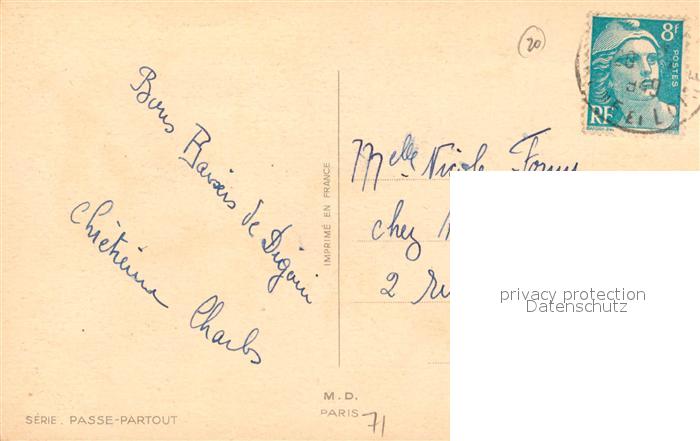 20
8F
POSTES
RF
Bons Baisers de Digoin
Christiana Charles
IMPRIMÉ EN FRANCE
Melle Nicole
chez
2 rue
privacy protection
Datenschutz
M.D.
PARIS
71
SÉRIE. PASSE-PARTOUT